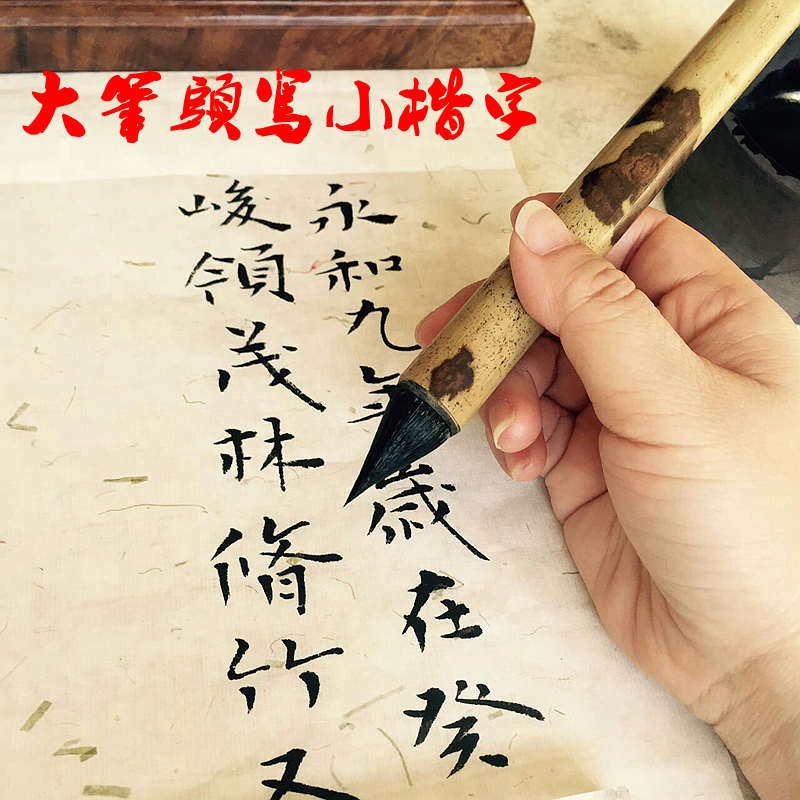 大筆頭写小楷字
永和九年歲在癸
峻領茂林脩竹又